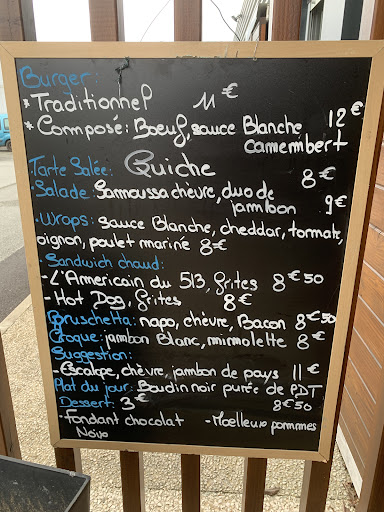 Burger:
* Traditionnel 11€
* Composé: Boeuf, sauce Blanche 12€
camembert
Tarte Salée: Quiche 8€
Salade: Samoussa chèvre, duo de
jambon 9€
- Wrops: sauce Blanche, cheddar, tomate,
oignon, poulet mariné 8€
- Sandwich chaud:
- L'Americain du 513, frites 8€50
- Hot Dog, frites 8€
Bruschetta: napo, chèvre, Bacon 8€50
Croque: jambon Blanc, mirmolette 8€
Suggestion:
- Escalope, chèvre, jambon de pays 11€
Plat du jour: Boudin noir purée de PDT
Dessert: 3€ 8€50
- Fondant chocolat - Moelleux pommes
Noix